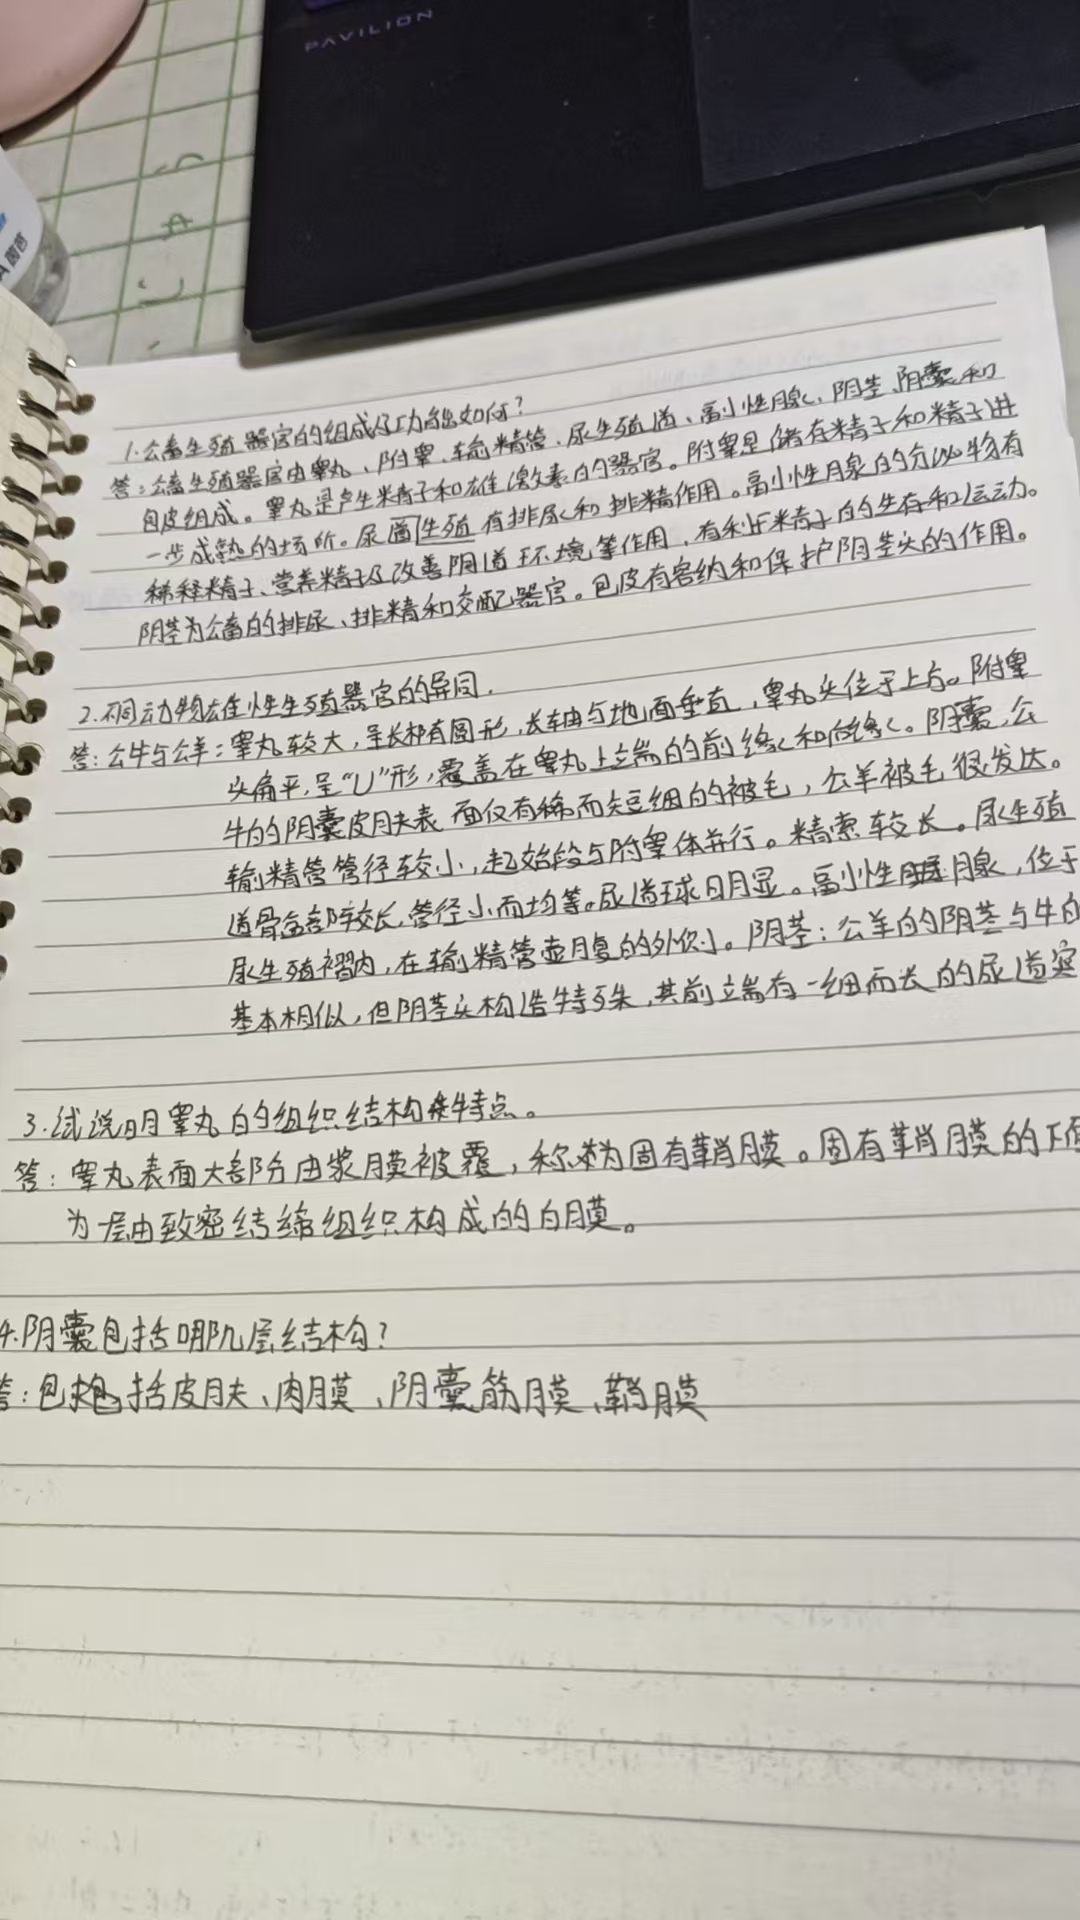 PAVILION
1.公畜生殖器官的组成及功能如何?
答:公畜生殖器官由睾丸、附睾、输精管、尿生殖道、副性腺、阴茎、阴囊和
包皮组成。睾丸是产生精子和雄激素的器官。附睾是储存精子和精子进
一步成熟的场所。尿道生殖有排尿和排精作用。副性腺的分泌物有
稀释精子、营养精子及改善阴道环境等作用,有利于精子的生存和运动。
阴茎为公畜的排尿、排精和交配器官。包皮有容纳和保护阴茎头的作用。
2.不同动物雄性生殖器官的异同.
答:公牛与公羊:睾丸较大,呈长椭圆形,长轴与地面垂直,睾丸头位于上方。附睾
头扁平,呈“U”形,覆盖在睾丸上端的前缘和后缘。阴囊,公
牛的阴囊皮肤表面仅有稀而短细的被毛,公羊被毛很发达。
输精管管径较小,起始段与附睾体并行。精索较长。尿生殖
道骨盆部较长,管径小而均等。尿道球明显。副性腺,位于
尿生殖褶内,在输精管壶腹的外侧。阴茎:公羊的阴茎与牛的
基本相似,但阴茎头构造特殊,其前端有一细而长的尿道突
3.试说明睾丸的组织结构特点。
答:睾丸表面大部分由浆膜被覆,称为固有鞘膜。固有鞘膜的下面
为一层由致密结缔组织构成的白膜。
4.阴囊包括哪几层结构?
答:包括皮肤、肉膜、阴囊筋膜、鞘膜